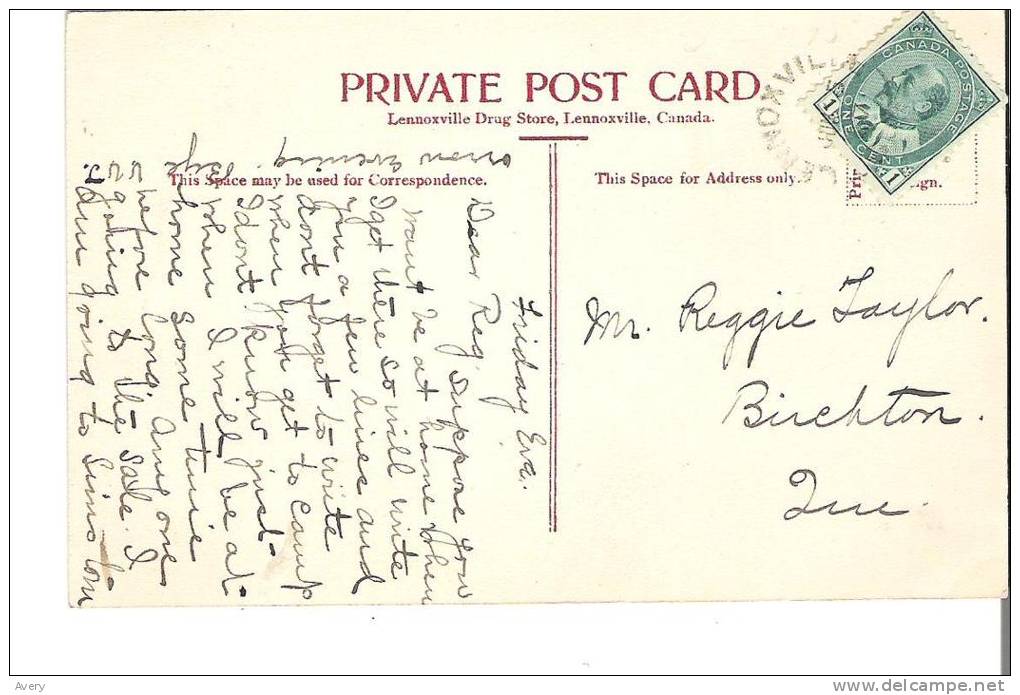 PRIVATE POST CARD
Lennoxville Drug Store, Lennoxville, Canada.
This Space may be used for Correspondence.
This Space for Address only.
Pri
ign.
LENNOXVILL
CANADA POSTAGE
ONE CENT
1
1
Mr. Reggie Taylor.
Birchton.
Que.
Friday Eve.
Dear Reg, suppose you
want be at home when
I get there so will write
you a few lines and
dont forget to write
when you get to camp
I dont know just
when I will be at
home some time
before long. Any one
going to the sale. I
am going to
evening. Bye
Avery
www.delcampe.net